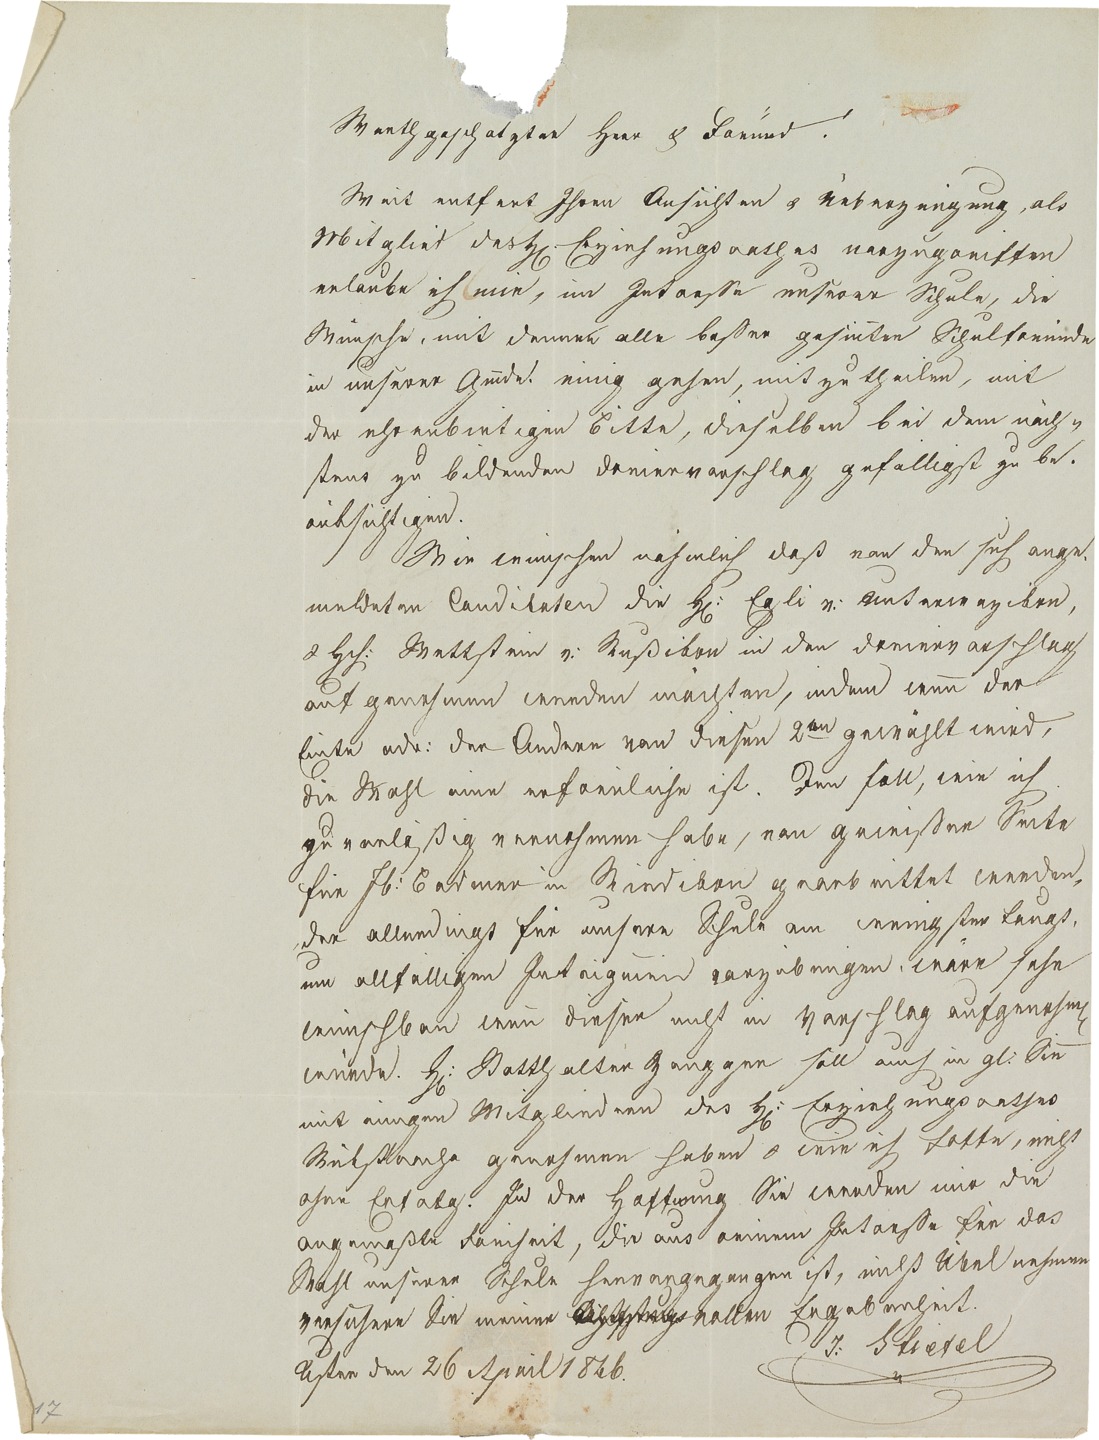 Werthgeschätzter Herr & Freund!
Weit entfert Ihren Ansichten & Ueberzeugung, als
Mitglied des H. Erziehungsrathes vorzugreiffen
erlaube ich mir, im Intresse unserer Schule, die
Wünsche, mit denen alle besser gesinten Schulfreunde
in unserer Gmde. einig gehen, mitzutheilen, mit
der ehrenbietigen Bitte, dieselben bei dem näch-
stens zu bildenden Dreiervorschlag gefälligst zu be-
rüksichtigen.
Wir wünschen nähmlich daß von den sich ange-
meldeten Candidaten die H: Egli v: Unterwezikon,
& Hch: Wettstein v: Rußikon in den Dreiervorschlag
auf genohmen werden möchten, indem wenn der
Einte odr: der Andere von diesen 2en gewählt wird,
die Wahl eine erfreuliche ist. Den Fall, wie ich
zuverläßig vernohmen habe, von gewißer Seite
für Jb: Bodmer in Riedikon gearbeittet werden,
der allerdings für unsere Schule am wenigsten taugt,
um allfälligen Intriguen vorzubeugen, wäre sehr
wünschbar wenn dieser nicht in Vorschlag aufgenohm
würde. H: Statthalter Zangger soll auch in gl: Sin
mit einigen Mitgliedern des H: Erziehungsrathes
Rüksprache genohmen haben & wie ich hoffe, nicht
ohne Erfolg. In der Hoffnung Sie werden mir die
angemaßte Freiheit, die aus reinem Intresse für das
Wohl unserer Schule hervorgegangen ist, nicht Übel nehmen
versichere Sie meiner vollen Ergebenheit.
J: Stiefel
Uster den 26 April 1846.
17